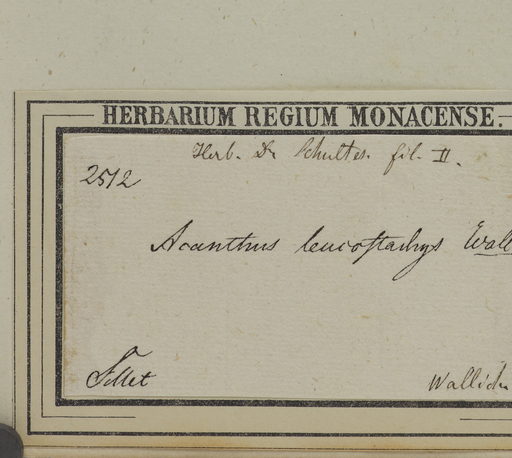 HERBARIUM REGIUM MONACENSE.
Herb. Dr Schultes. fil. II.
2512
Acanthus leucostachys Wall
Sillet
Wallich